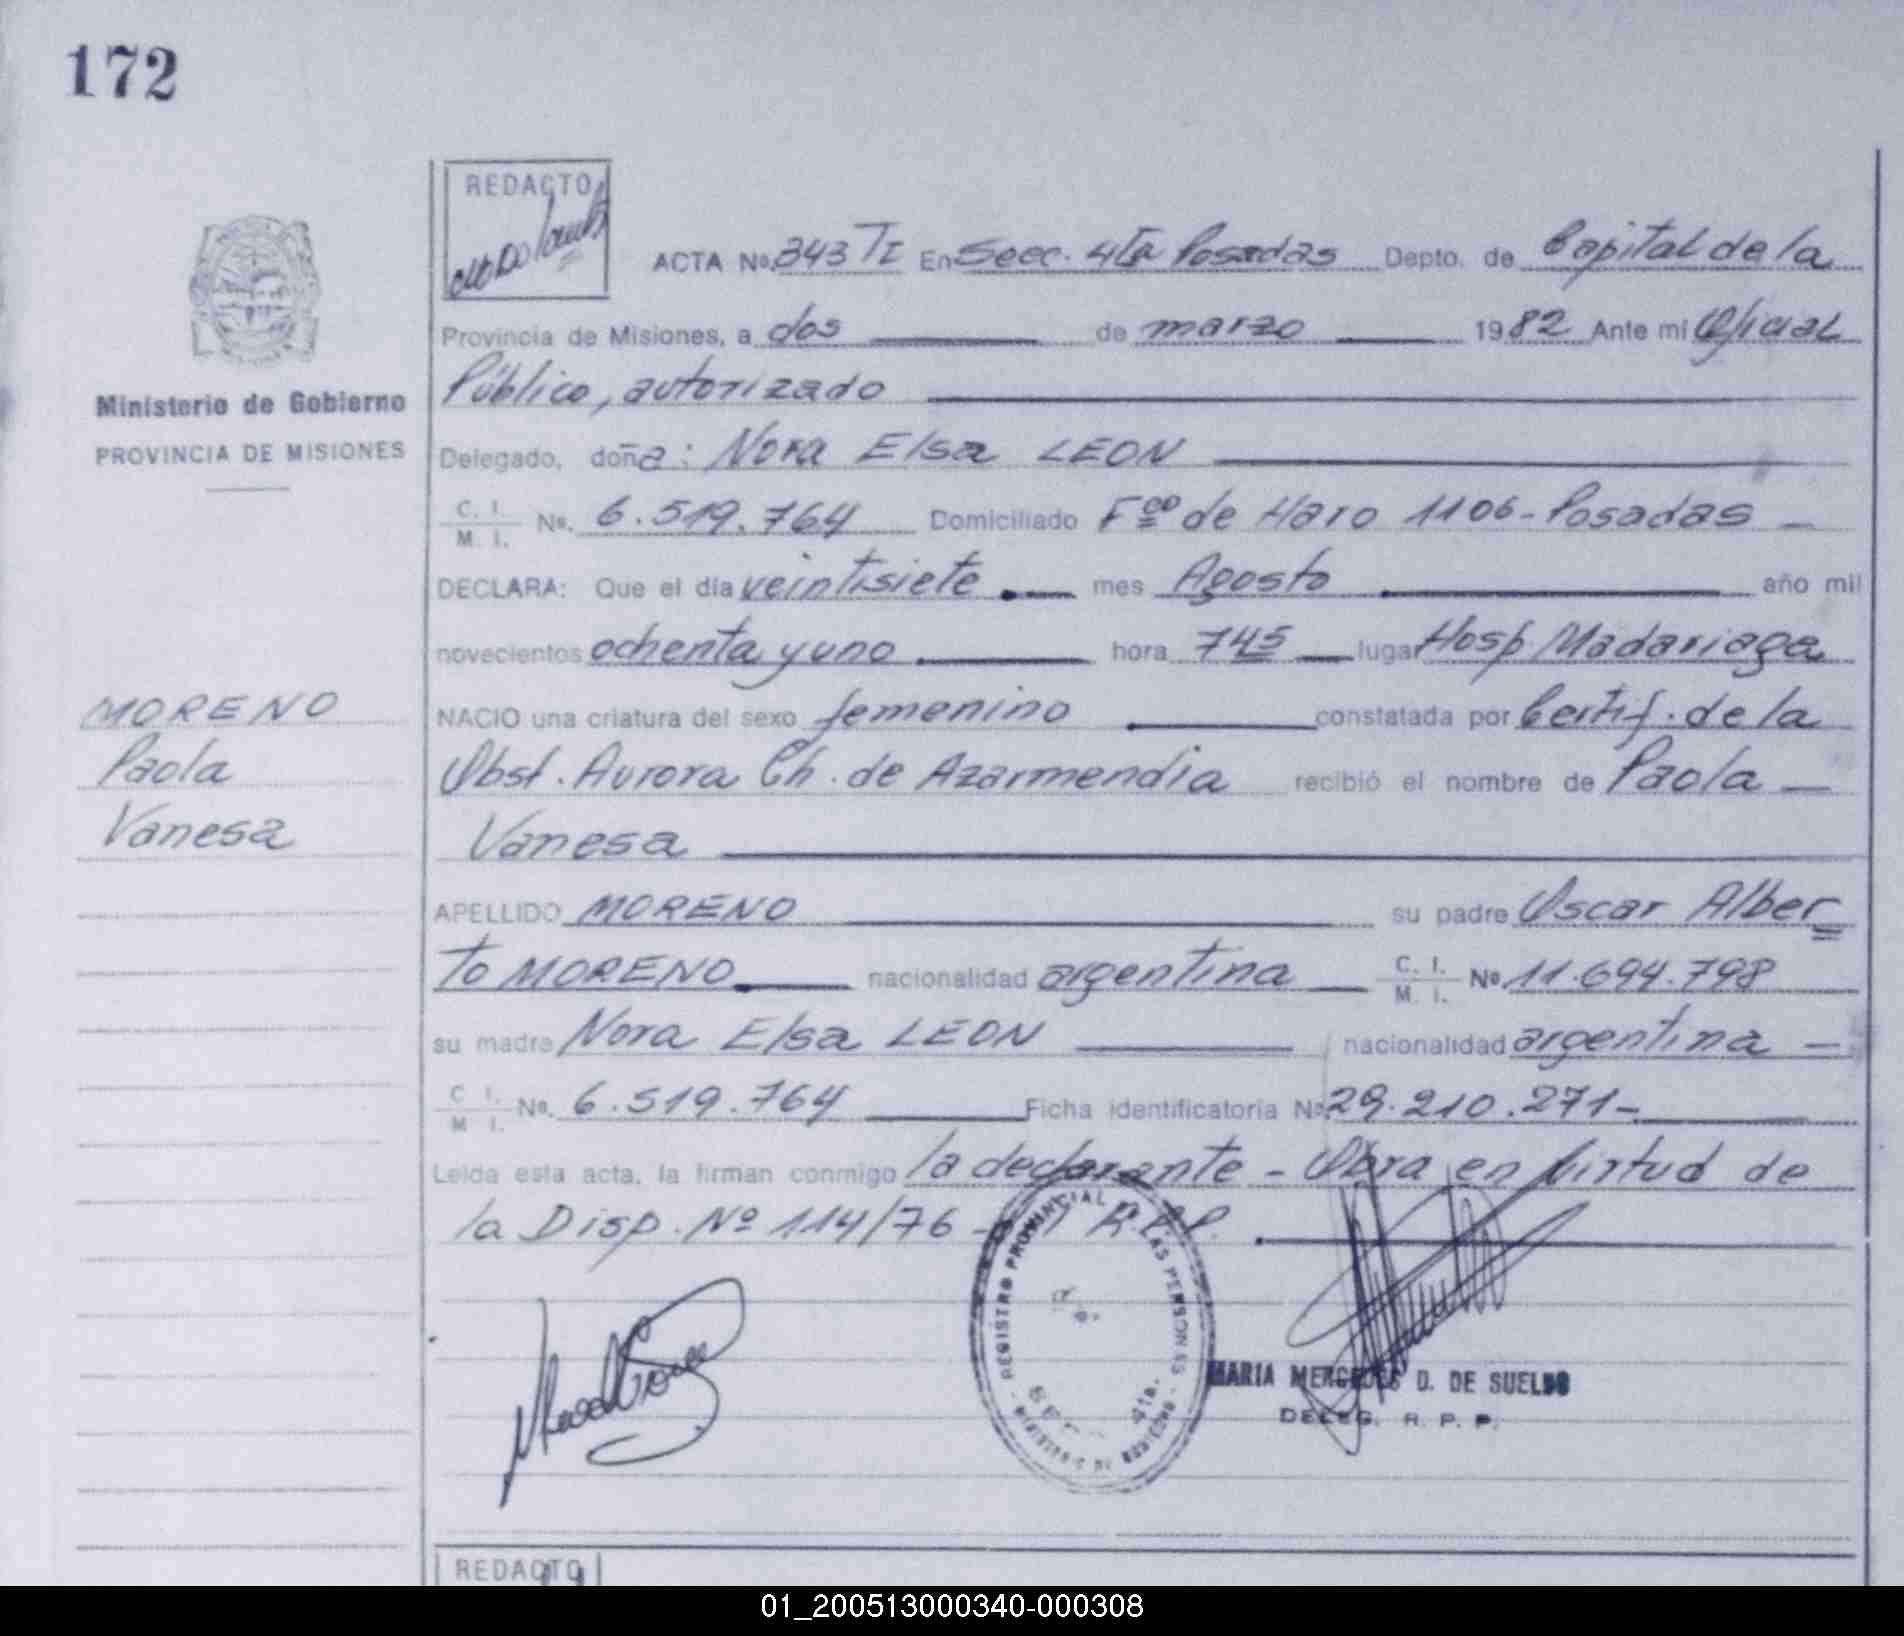 172
REDACTO
ACTA No. 343 TI En Secc. 4ta Posadas Depto. de Capital de la
Provincia de Misiones, a dos de marzo 1982 Ante mi Oficial
Ministerio de Gobierno
Público, autorizado
PROVINCIA DE MISIONES
Delegado, doña: Nora Elsa LEON
C. I.
M. I. No. 6.519.764 Domiciliado Fco de Haro 1106 - Posadas -
DECLARA: Que el día veintisiete mes Agosto año mil
novecientos ochenta y uno hora 745 lugar Hosp. Madariaga
MORENO
NACIO una criatura del sexo femenino constatada por Certif. de la
Paola
Obst. Aurora Ch. de Azarmendia recibió el nombre de Paola -
Vanesa
Vanesa
APELLIDO MORENO su padre Oscar Alber
to MORENO nacionalidad argentina C. I. M. I. No 11.694.798
su madre Nora Elsa LEON nacionalidad argentina -
C. I.
M. I. No. 6.519.764 Ficha identificatoria No 29.210.271-
Leida esta acta, la firman conmigo la declarante - Obra en virtud de
la Disp. Nº 114/76 - R.P.P.
REGISTRO PROVINCIAL DE LAS PERSONAS
4ta.
MARIA MERCEDES D. DE SUELDO
DELEG. R. P. P.
REDACTO
01_200513000340-000308